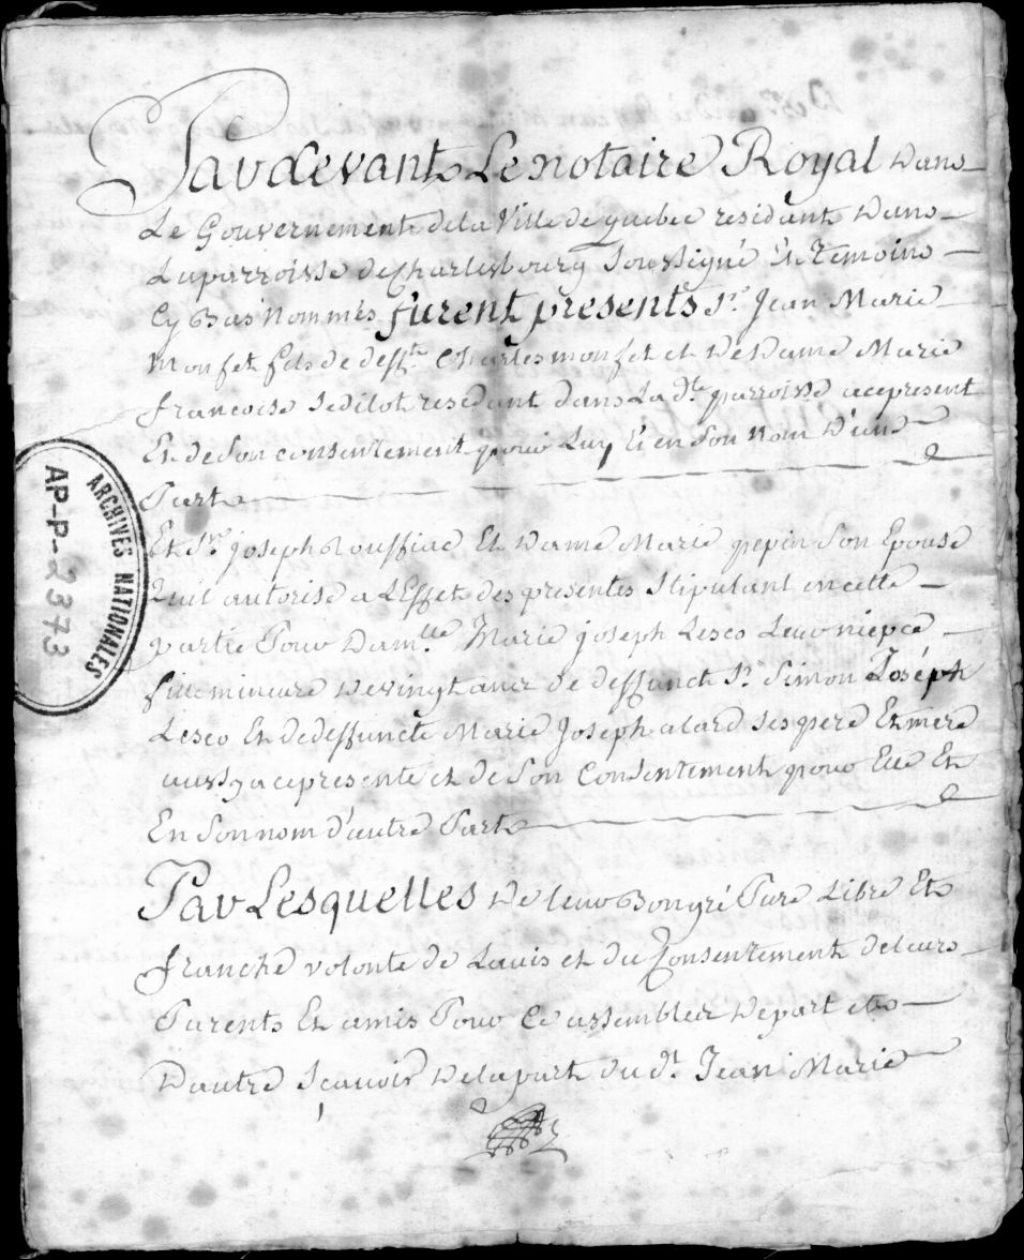 Pardevant Le notaire Royal Dans
Le Gouvernement de la Ville de quebec residant Dans
La parroisse de Charlesbourg Soussigné Et Temoins
Cy Bas Nommés furent presents Sr. Jean Marie
Monfet fils de defft. Charles monfet et De Dame Marie
francoise Sedilot residant dans La dte parroisse a ce present
Et de Son consentement pour Luy Et en Son Nom D'une
Part
Et Sr. joseph Rouffiac Et Dame Marie pepin Son Epouse
Luil autorise a LEffet des presentes Stipulant en cette
partie Pour Damlle Marie joseph Lesco Leur niepce
fille mineure De vingt anez de deffunct Sr. Simon Joséph
Lesco Et de deffuncte Marie Joseph alard Ses pere Et mere
aussy a ce presente et de Son Consentement pour Elle Et
En Son nom d'autre Part
Par Lesquelles De leur Bongré Pure Libre Et
franche volonté de Lavis et du Consentement de leurs
Parents Et amis Pour Ce assemblez De part et
Dautre Sçavoir De la part du dt. Jean Marie
ARCHIVES NATIONALES
AP-P-2373